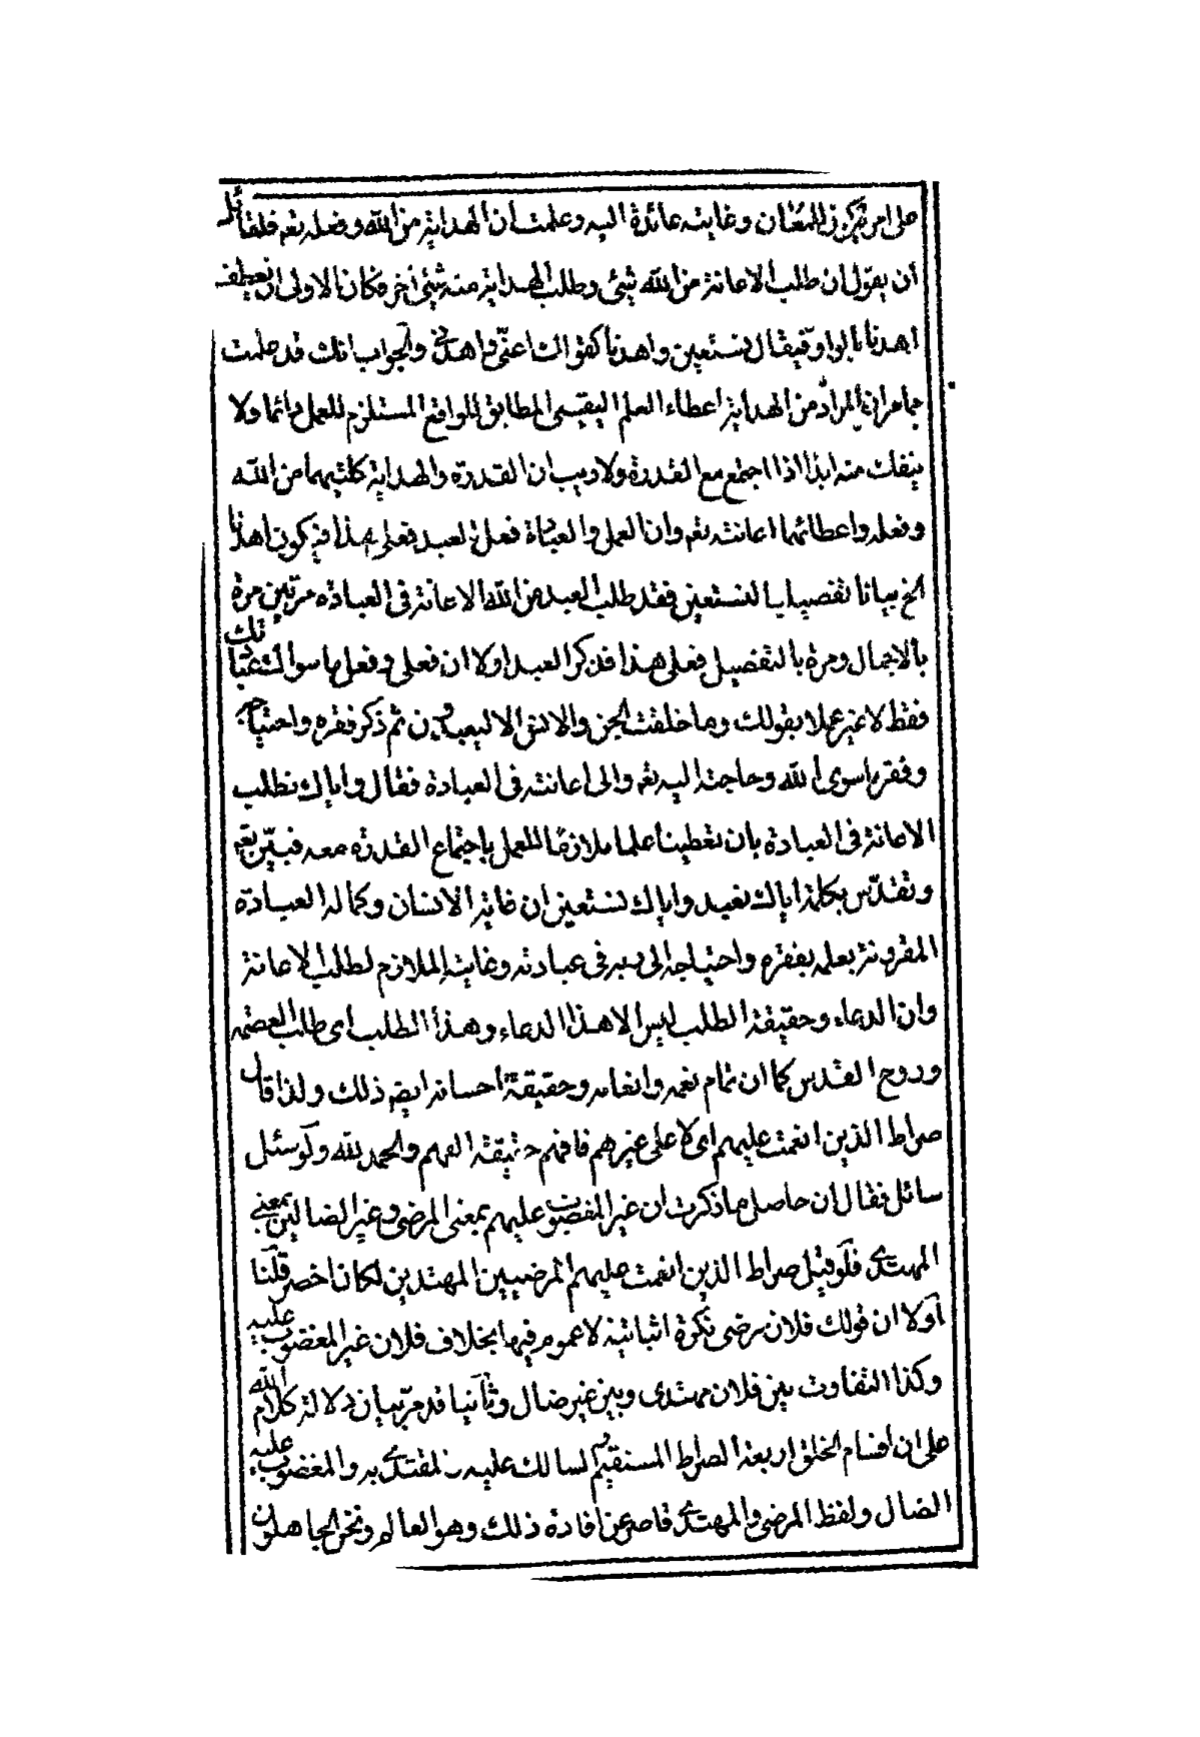 على امر مركوز للمعان وغايته عائدة اليه وعلمت ان الهداية من الله وفعله تعه فلقائل
ان يقول ان طلب الاعانة من الله شيئ وطلب الهداية منه شيئ اخر فكان الاولى ان يعطف
اهدنا بالواو فيقال نستعين واهدنا كقولك اعنّى واهدنى والجواب انك قد علمت
مما مر ان المراد من الهداية اعطاء العلم اليقينى المطابق للواقع المستلزم للعمل دائما ولا
ينفك منه ابدا اذا اجتمع مع القدرة ولا ريب ان القدرة والهداية كلتيهما من الله
وفعله واعطائهما اعانته تعه وان العمل والعبادة فعل العبد فعلى هذا فيكون اهدنا
الخ بيانا تفصيليا لنستعين فقد طلب العبد من الله الاعانة فى العبادة مرتين مرة
بالاجمال ومرة بالتفصيل فعلى هذا فذكر العبد اولا ان فعلى وفعل ما سواك عبادتك
فقط لا غير عملا بقولك وما خلقت الجن والانس الا ليعبدون ثم ذكر فقره واحتياجه
وفقر ما سوى الله وحاجته اليه تعه والى اعانته فى العبادة فقال واياك نطلب
الاعانة فى العبادة بان تعطينا علما ملازما للعمل باجتماع القدرة معه فبيّن تعه
وتقدّس بكلمة اياك نعبد واياك نستعين ان غاية الانسان وكماله العبادة
المقرونة بعلمه بفقره واحتياجه الى ربه فى عبادته وغايته الملازم لطلب الاعانة
وان الدعاء وحقيقة الطلب ليس الا هذا الدعاء وهذا الطلب اى طلب العصمة
وروح القدس كما ان تمام نعمه وانعامه وحقيقة احسانه ايضه ذلك ولذا قال
صراط الذين انعمت عليهم اى لا على غيرهم فافهم حقيقة الفهم والحمد لله ولو سئل
سائل فقال ان حاصل ما ذكرت ان غير المغضوب عليهم بمعنى المرضى وغير الضالين بمعنى
المهتدى فلو قيل صراط الذين انعمت عليهم المرضيين المهتدين لكان اخصر قلنا
اولا ان قولك فلان مرضى نكرة اثباتية لا عموم فيها بخلاف فلان غير المغضوب عليه
وكذا التفاوت بين فلان مهتدى وبين غير ضال وثانيا قد مرّ بيان دلالة كلام الله
على ان اقسام الخلق اربعة الصراط المستقيم السالك عليه المقتدى به والمغضوب عليه
الضال ولفظ المرضى والمهتدى قاصر عن افادة ذلك وهو العالم ونحن الجاهلون